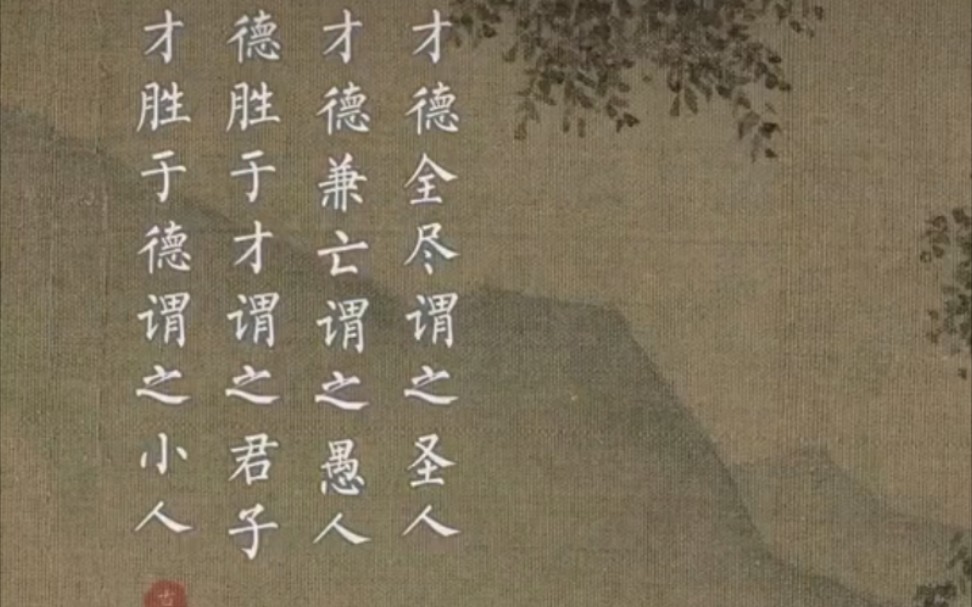 才德全尽谓之圣人
才德兼亡谓之愚人
德胜于才谓之君子
才胜于德谓之小人